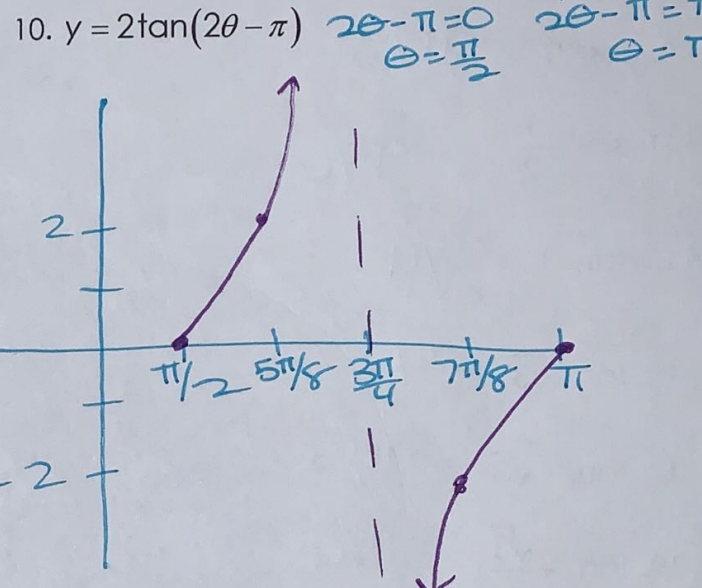 10. y = 2tan(2θ − π) 2θ - π = 0 2θ - π =
θ = π/2 θ =
2
π/2 5π/8 3π/4 7π/8 π
-2